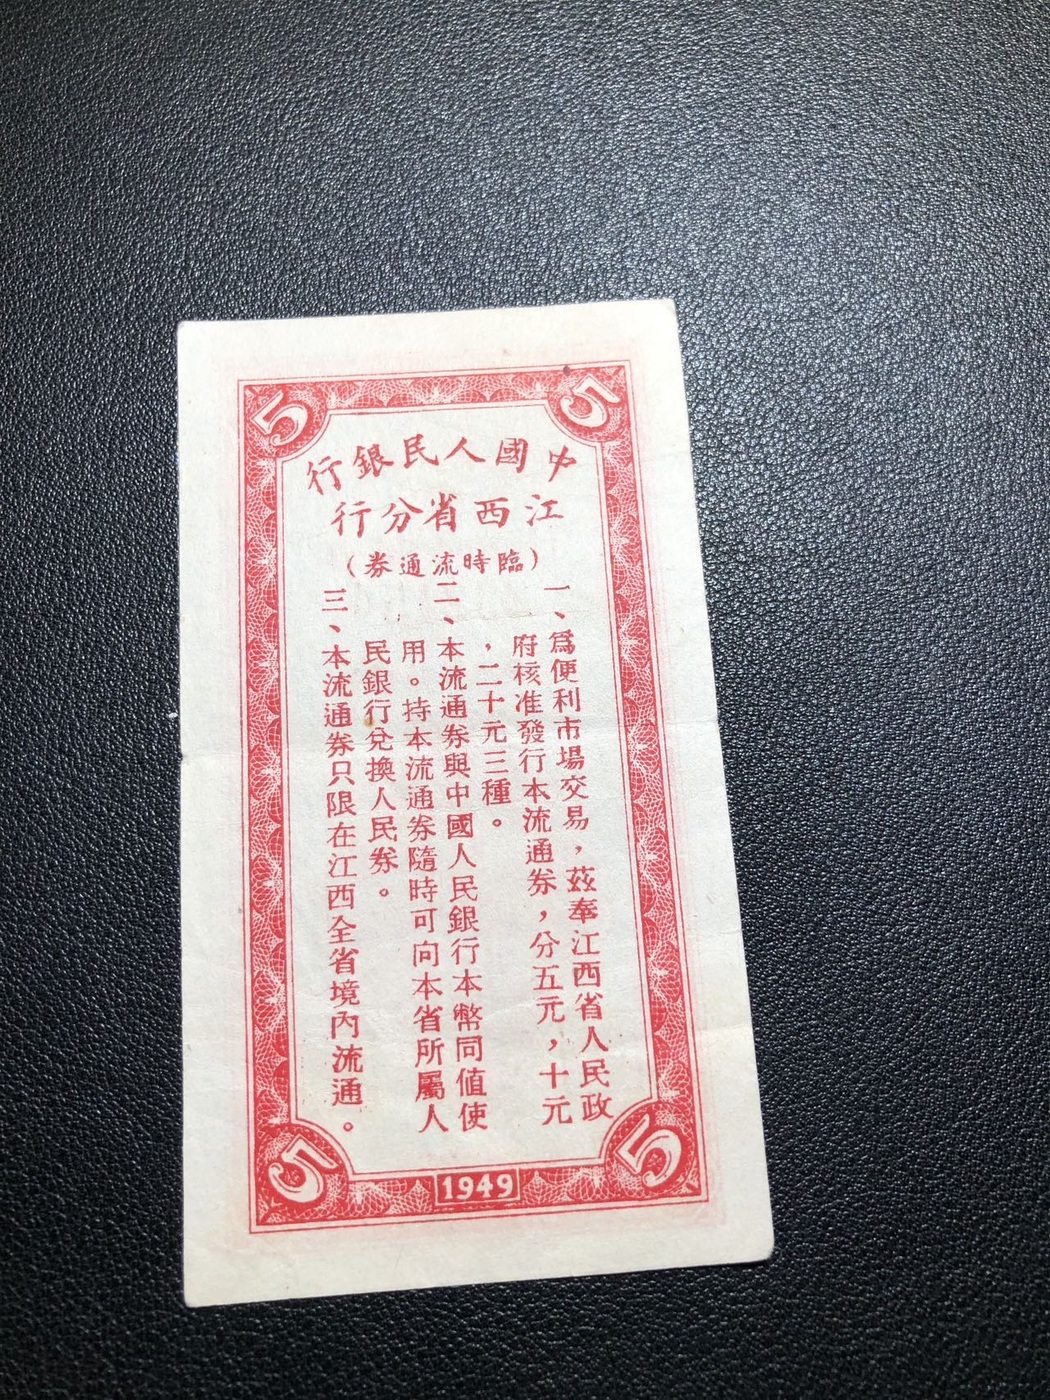 5 5
中國人民銀行
江西省分行
(臨時流通券)
一、爲便利市場交易，茲奉江西省人民政
府核准發行本流通券，分五元，十元
，二十元三種。
二、本流通券與中國人民銀行本幣同值使
用。持本流通券隨時可向本省所屬人
民銀行兌換人民券。
三、本流通券只限在江西全省境內流通。
5 5
1949